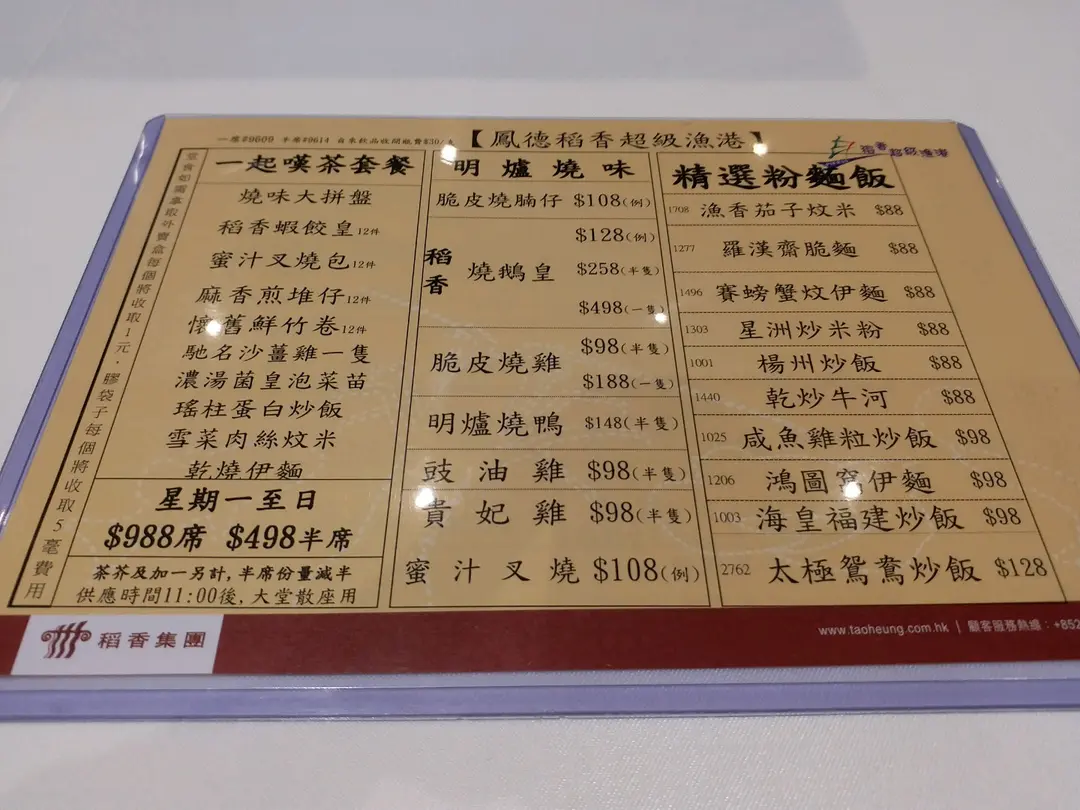 一席#9609 半席#9614 自來飲品收開瓶費$30/支
【鳳德稻香超級漁港】
稻香超級漁港
如需拿取外賣盒每個將收取1元，膠袋子每個將收取5毫費用
一起嘆茶套餐
燒味大拼盤
稻香蝦餃皇12件
蜜汁叉燒包12件
麻香煎堆仔12件
懷舊鮮竹卷12件
馳名沙薑雞一隻
濃湯菌皇泡菜苗
瑤柱蛋白炒飯
雪菜肉絲炆米
乾燒伊麵
星期一至日
$988席 $498半席
茶芥及加一另計,半席份量減半
供應時間11:00後,大堂散座用
明爐燒味
脆皮燒腩仔 $108(例)
稻香 燒鵝皇 $128(例)
$258(半隻)
$498(一隻)
脆皮燒雞 $98(半隻)
$188(一隻)
明爐燒鴨 $148(半隻)
豉油雞 $98(半隻)
貴妃雞 $98(半隻)
蜜汁叉燒 $108(例)
精選粉麵飯
1708 漁香茄子炆米 $88
1277 羅漢齋脆麵 $88
1496 賽螃蟹炆伊麵 $88
1303 星洲炒米粉 $88
1001 楊州炒飯 $88
1440 乾炒牛河 $88
1025 咸魚雞粒炒飯 $98
1206 鴻圖窩伊麵 $98
1003 海皇福建炒飯 $98
2762 太極鴛鴦炒飯 $128
稻香集團
www.taoheung.com.hk | 顧客服務熱線：+852